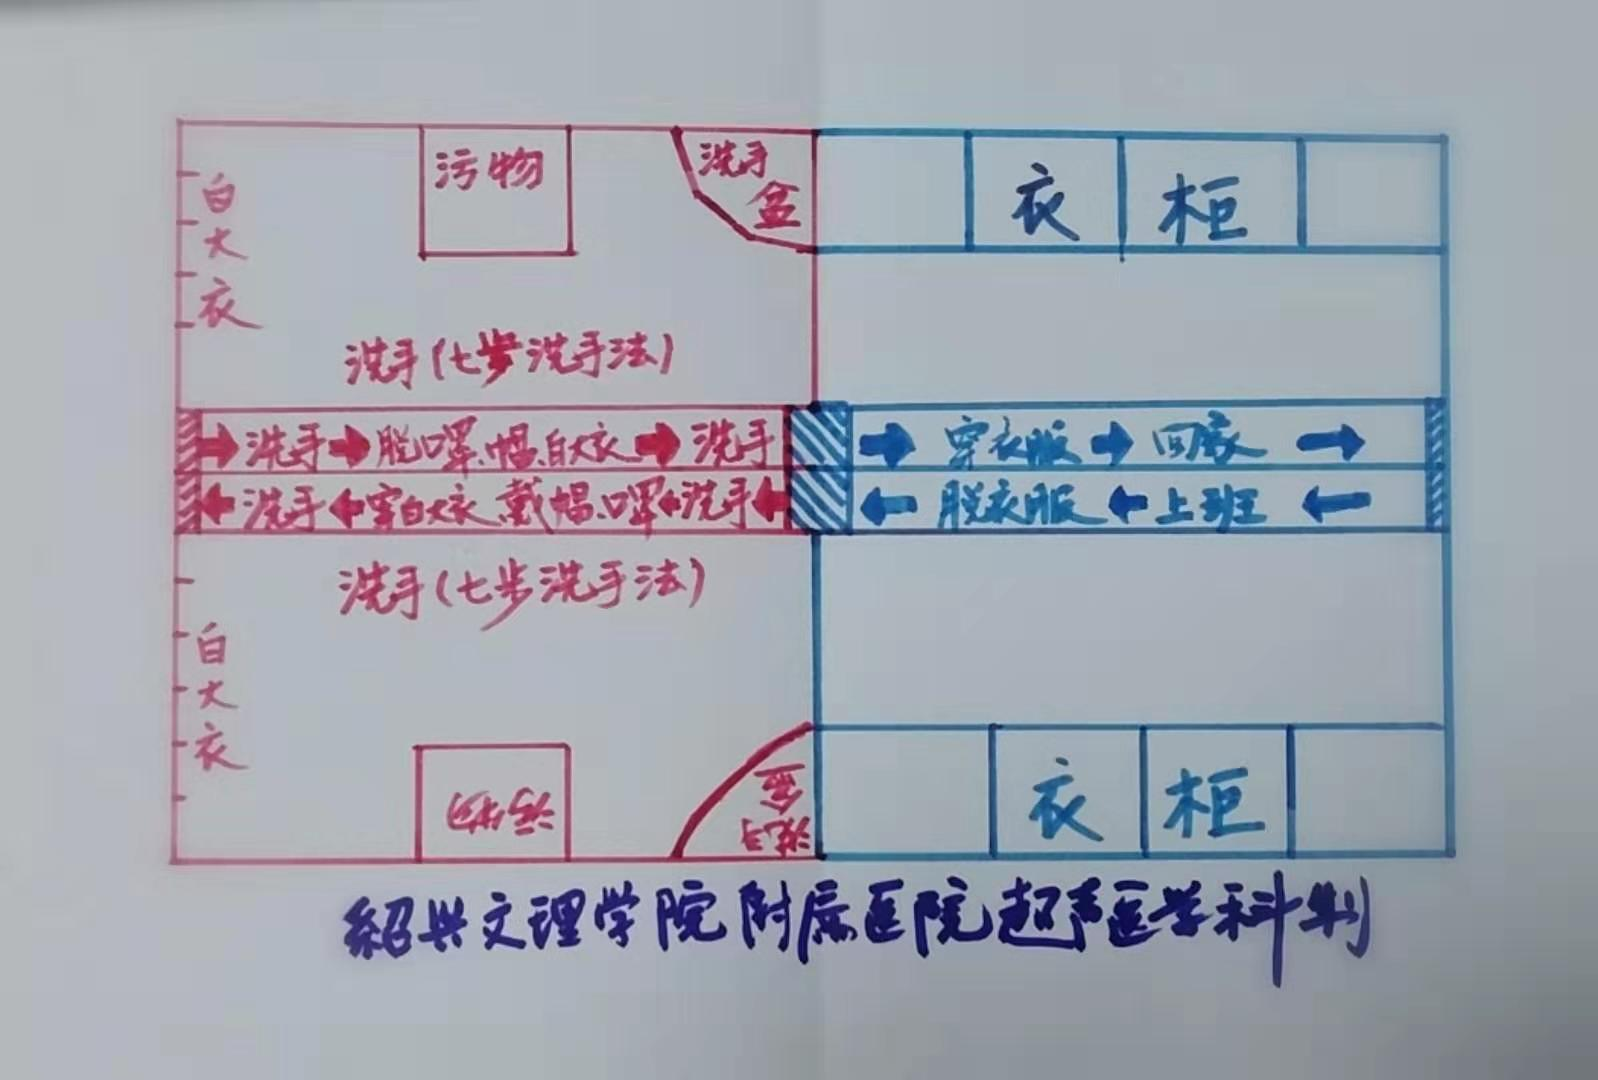 污物
洗手
盆
衣 柜
白
大
衣
洗手(七步洗手法)
洗手 脱口罩、帽、白大衣 洗手
穿衣服 回家
洗手 穿白大衣、戴帽、口罩 洗手
脱衣服 上班
洗手(七步洗手法)
白
大
衣
污物
洗手
盆
衣 柜
紹興文理学院附属医院超声医学科制